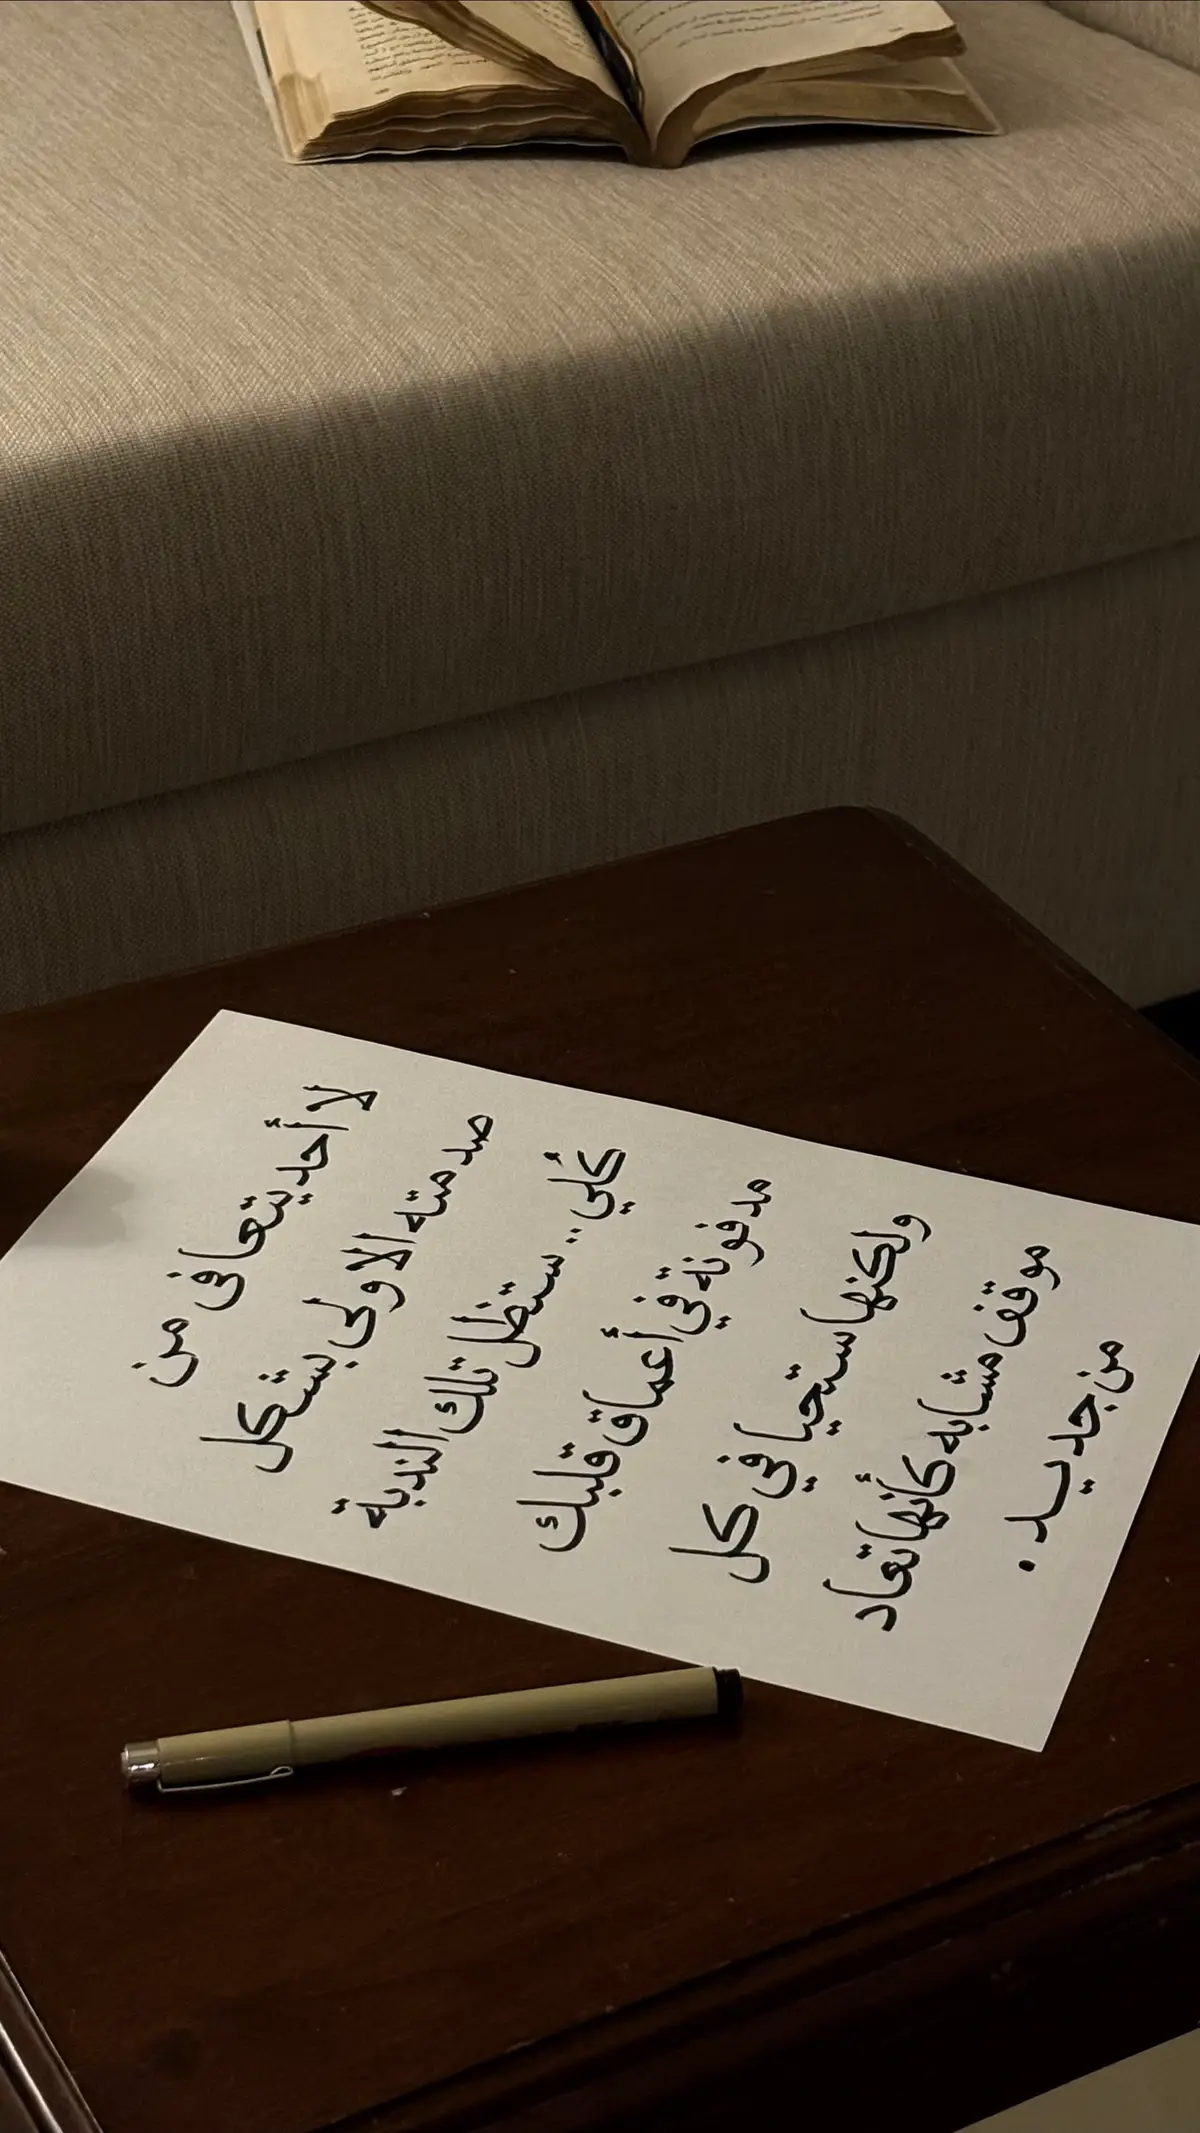 لا أحد يتعافى من
صدمته الاولى بشكل
كُلي.. ستظل تلك الندبة
مدفونة في أعماق قلبك
ولكنها ستحيا في كل
موقف مشابه كأنها تعاد
من جديــد.